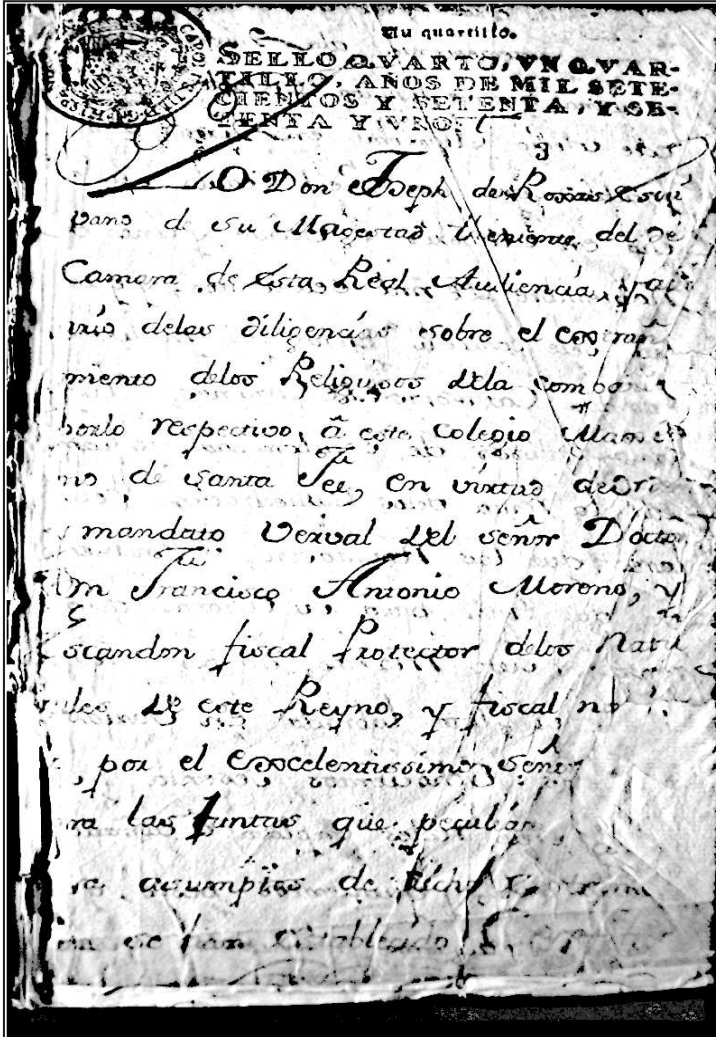 Un quartillo.
SELLO QVARTO, VN QVAR-
TILLO, AÑOS DE MIL SETE-
CIENTOS Y SETENTA, Y SE-
TENTA Y VNO.
3
YO Don Joseph de Roxas Escri
vano de su Magestad theniente del de
Camara de esta Real Audiencia, y
delas diligencias sobre el extraña
miento delos Religiosos dela Compa
por lo respectivo, â este Colegio Maxi
no de Santa Fee, en virtud de
mandato Verval del señor Docto
Francisco Antonio Moreno, y
Escandon fiscal Protector delos Natu
rales de este Reyno, y fiscal
por el Excelentissimo señ
ra las Juntas que
asumptos de dicho
se han establecido